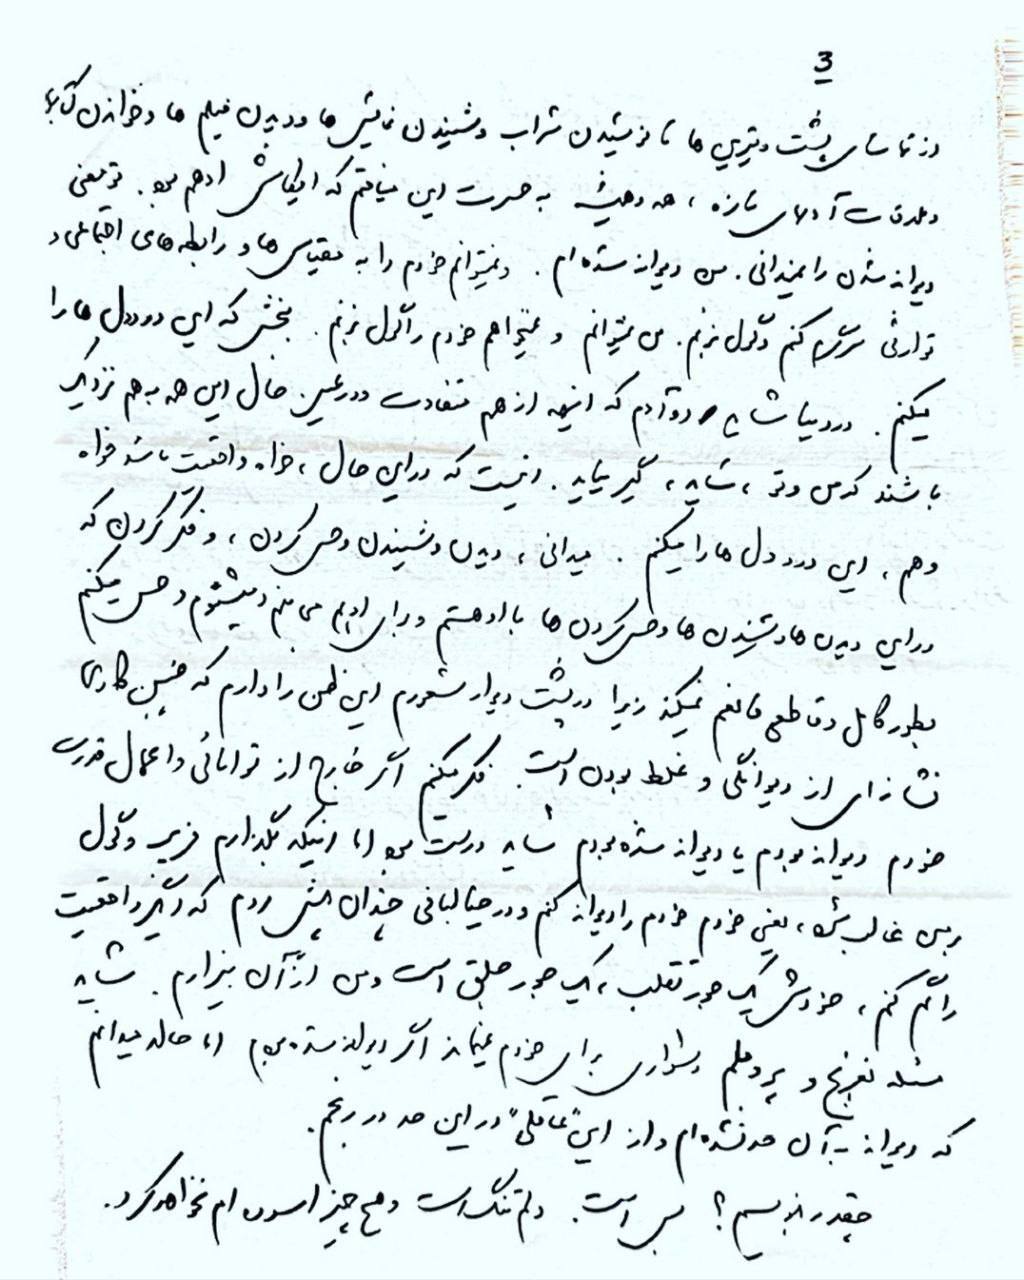 3
از تماشای پشت ویترین ها تا نوشیدن شراب و شنیدن نمایش ها و دیدن فیلم ها و خواندن کتابها
و ملاقات آدمهای تازه ، همه وهمیشه به حسرت این میافتم که ایکاش او هم بود. تو معنی
دیوانه شدن را میدانی. من دیوانه شده ام . ونمیتوانم خودم را به مقیاس ها و رابطه های اجتماعی و
توارثی سرگرم کنم و گول بزنم. من نمیتوانم و نمیخواهم خودم را گول بزنم . ببخش که این درددل ها را
میکنم . در دنیا شاید دو آدم که اینهمه از هم متفاوت و در عین حال این همه به هم نزدیک
باشند که من و تو ، شاید ، گیر بیاید . اینست که در این حال ، خواه واقعیت باشد خواه
وهم ، این درد دل ها را میکنم . میدانی ، دیدن و شنیدن و حس کردن ، و فکر کردن که
در این دیدن ها و شنیدن ها و حس کردن ها با او هستم و برای او می بینم و میشنوم و حس میکنم
بطور کامل و قاطع قانعم نمیکند زیرا در پشت دیوار شعورم این ظن را دارم که چنین کاری
نشانه ای از دیوانگی و غلط بودن است . فکر میکنم اگر خارج از توانائی و اعمال قدرت
خودم دیوانه بودم یا دیوانه شده بودم شاید درست بود اما اینکه بگذارم فریب و گول
برمن غالب شود ، یعنی خودم خودم را دیوانه کنم و در خیالبافی چندان پیش روم که اثر واقعیت
را گم کنم ، خودش یک جور تقلب ، یک جور جلقی است ومن از آن بیزارم . شاید
مسئله بغرنج و پروبلم دشواری برای خودم نمیماند اگر دیوانه شده بودم اما حالا میدانم
که دیوانه به آن حد نشده ام و از این "عاقلی" در این حد در رنجم .
چقدر بنویسم ؟ بس است . دلم تنگ است و هیچ چیز آسوده ام نخواهد کرد.